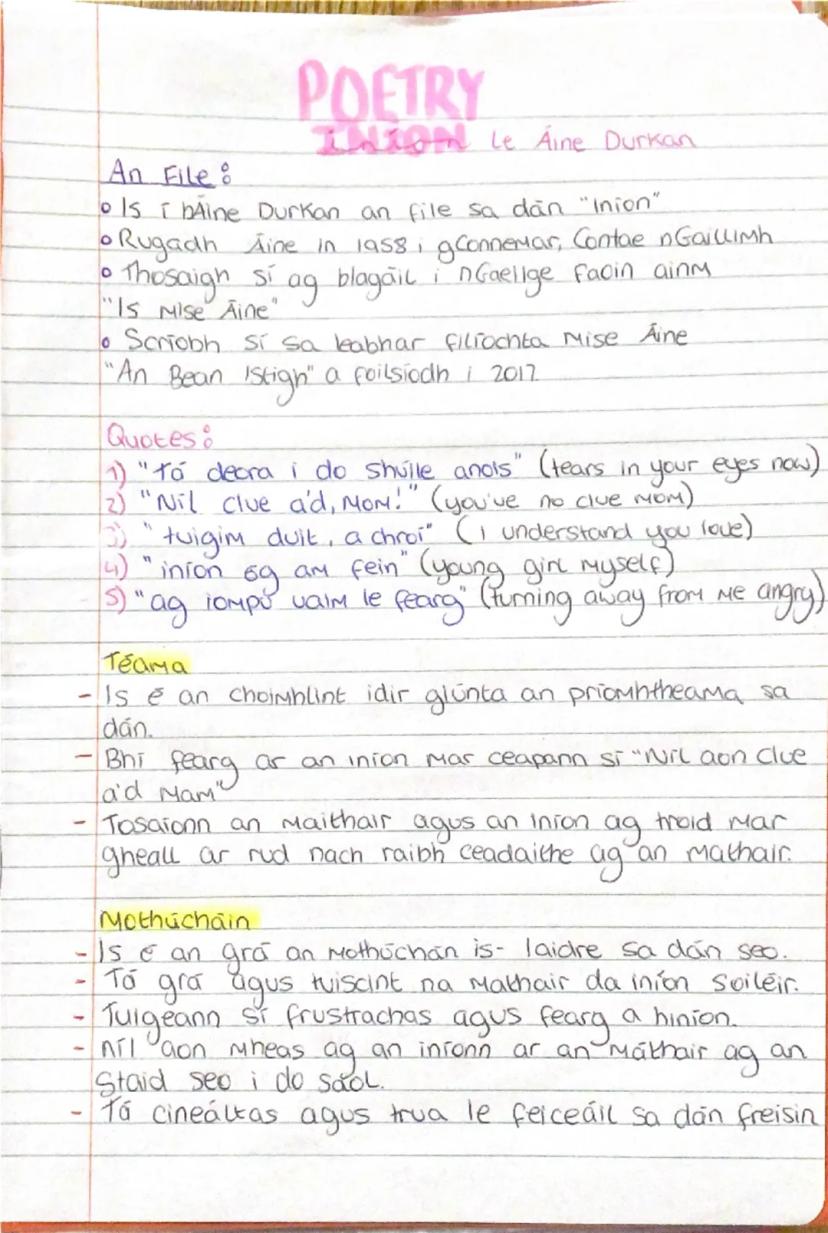 POETRY
INÍON le Áine Durkan
An File:
Is í bÁine Durkan an file sa dán "Iníon"
Rugadh Áine in 1958 i gConnemar, Contae nGaillimh
Thosaigh sí ag blagáil i nGaeilge faoin ainm
"Is Mise Áine"
Scríobh sí sa leabhar filíochta Mise Áine
"An Bean Istigh" a foilsíodh i 2017
Quotes:
1) "Tá deora i do shúile anois" (tears in your eyes now)
2) "Níl clue a'd, Mom!" (you've no clue Mom)
3) "tuigim duit, a chroí" (I understand you love)
4) "iníon óg am fein" (young girl Myself)
5) "ag iompú uaim le fearg" (turning away from me angry)
Téama
- Is é an choimhlint idir glúnta an príomhtheama sa
dán.
- Bhí fearg ar an iníon mar ceapann sí "Níl aon clue
a'd Mam"
- Tosaíonn an Maithair agus an Iníon ag troid Mar
gheall ar rud nach raibh ceadaithe ag an mathair.
Mothúcháin
- Is é an grá an Mothúchán is- laidre sa dán seo.
- Tá grá agus tuiscint na Mathair da iníon soiléir.
- Tuigeann sí frustrachas agus fearg a hiníon.
- níl aon mheas ag an iníonn ar an Máthair ag an
Staid seo i do saol.
- Tá cineáltas agus trua le feiceáil sa dán freisin